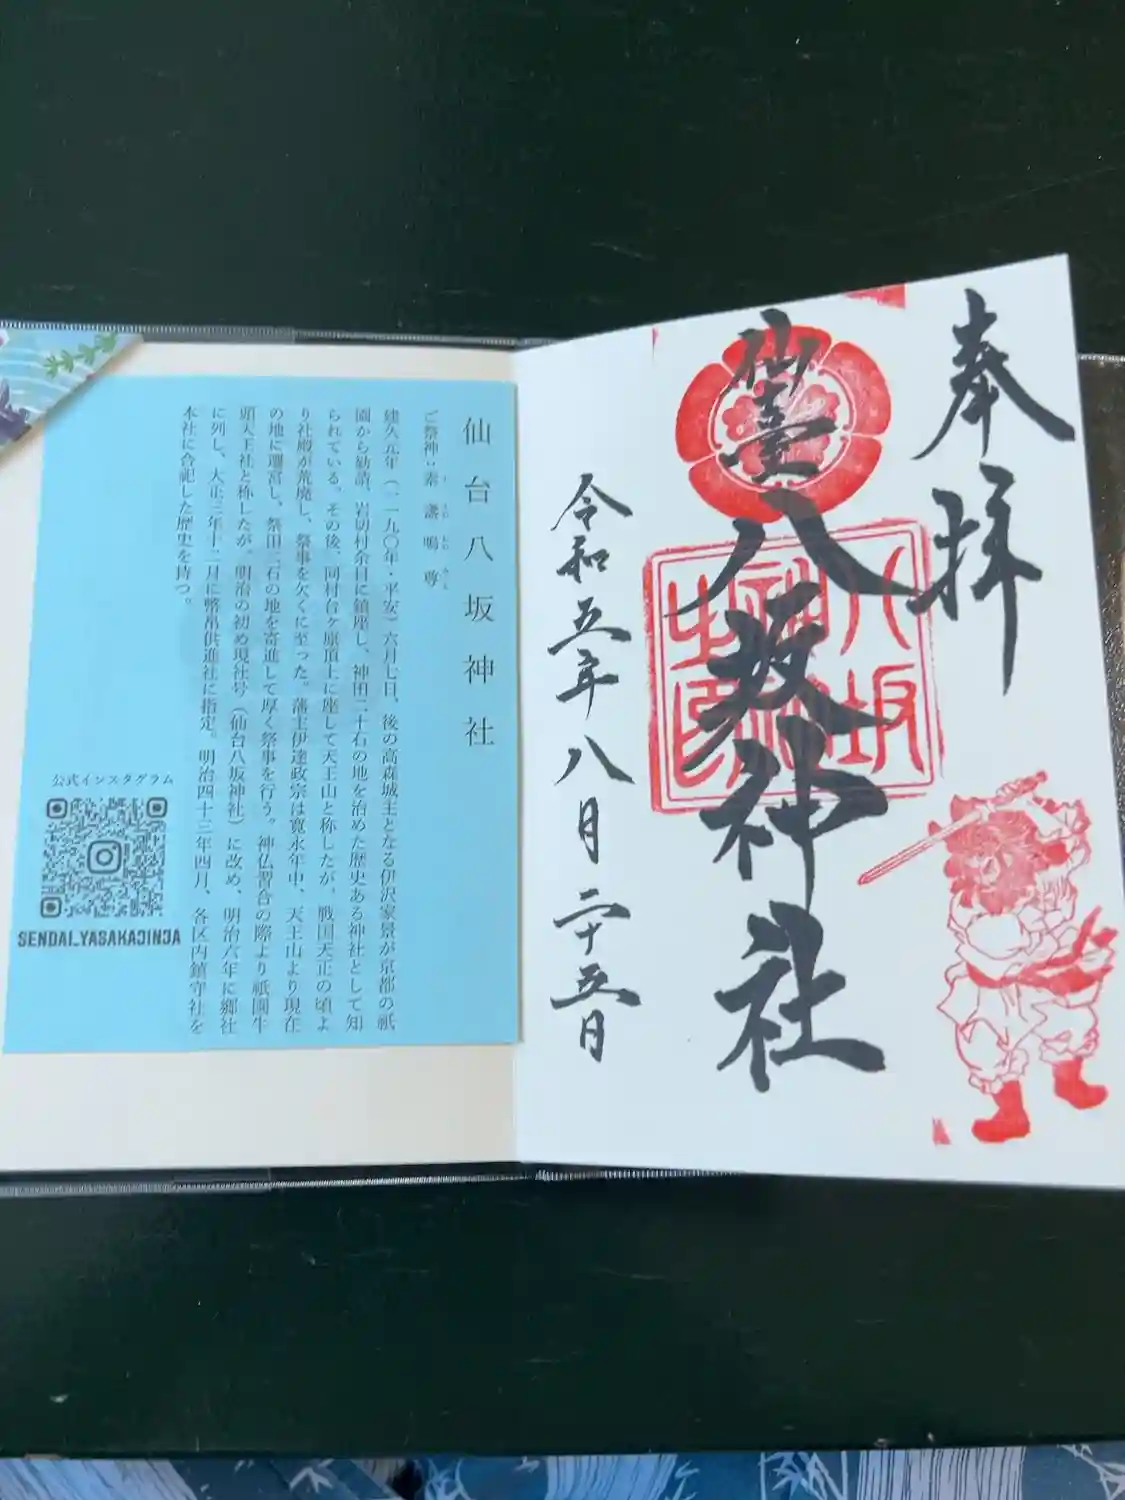 奉拝
仙臺八坂神社
八坂
神社
之印
令和五年八月二十五日
仙台八坂神社
ご祭神:素盞嗚尊
建久元年(一一九〇年・平安)六月七日、後の高森城主となる伊沢家景が京都の祇
園から勧請、岩切村余目に鎮座し、神田二十石の地を治めた歴史ある神社として知
られている。その後、同村台ヶ原頂上に座して天王山と称したが、戦国天正の頃よ
り社殿が荒廃し、祭事を欠くに至った。藩主伊達政宗は寛永年中、天王山より現在
の地に遷宮し、祭田二石の地を寄進して厚く祭事を行う。神仏習合の際より祇園牛
頭天王社と称したが、明治の初め現社号(仙台八坂神社)に改め、明治六年に郷社
に列し、大正三年十二月に幣帛供進社に指定。明治四十三年四月、各区内鎮守社を
本社に合祀した歴史を持つ。
公式インスタグラム
SENDAI_YASAKAJINJA